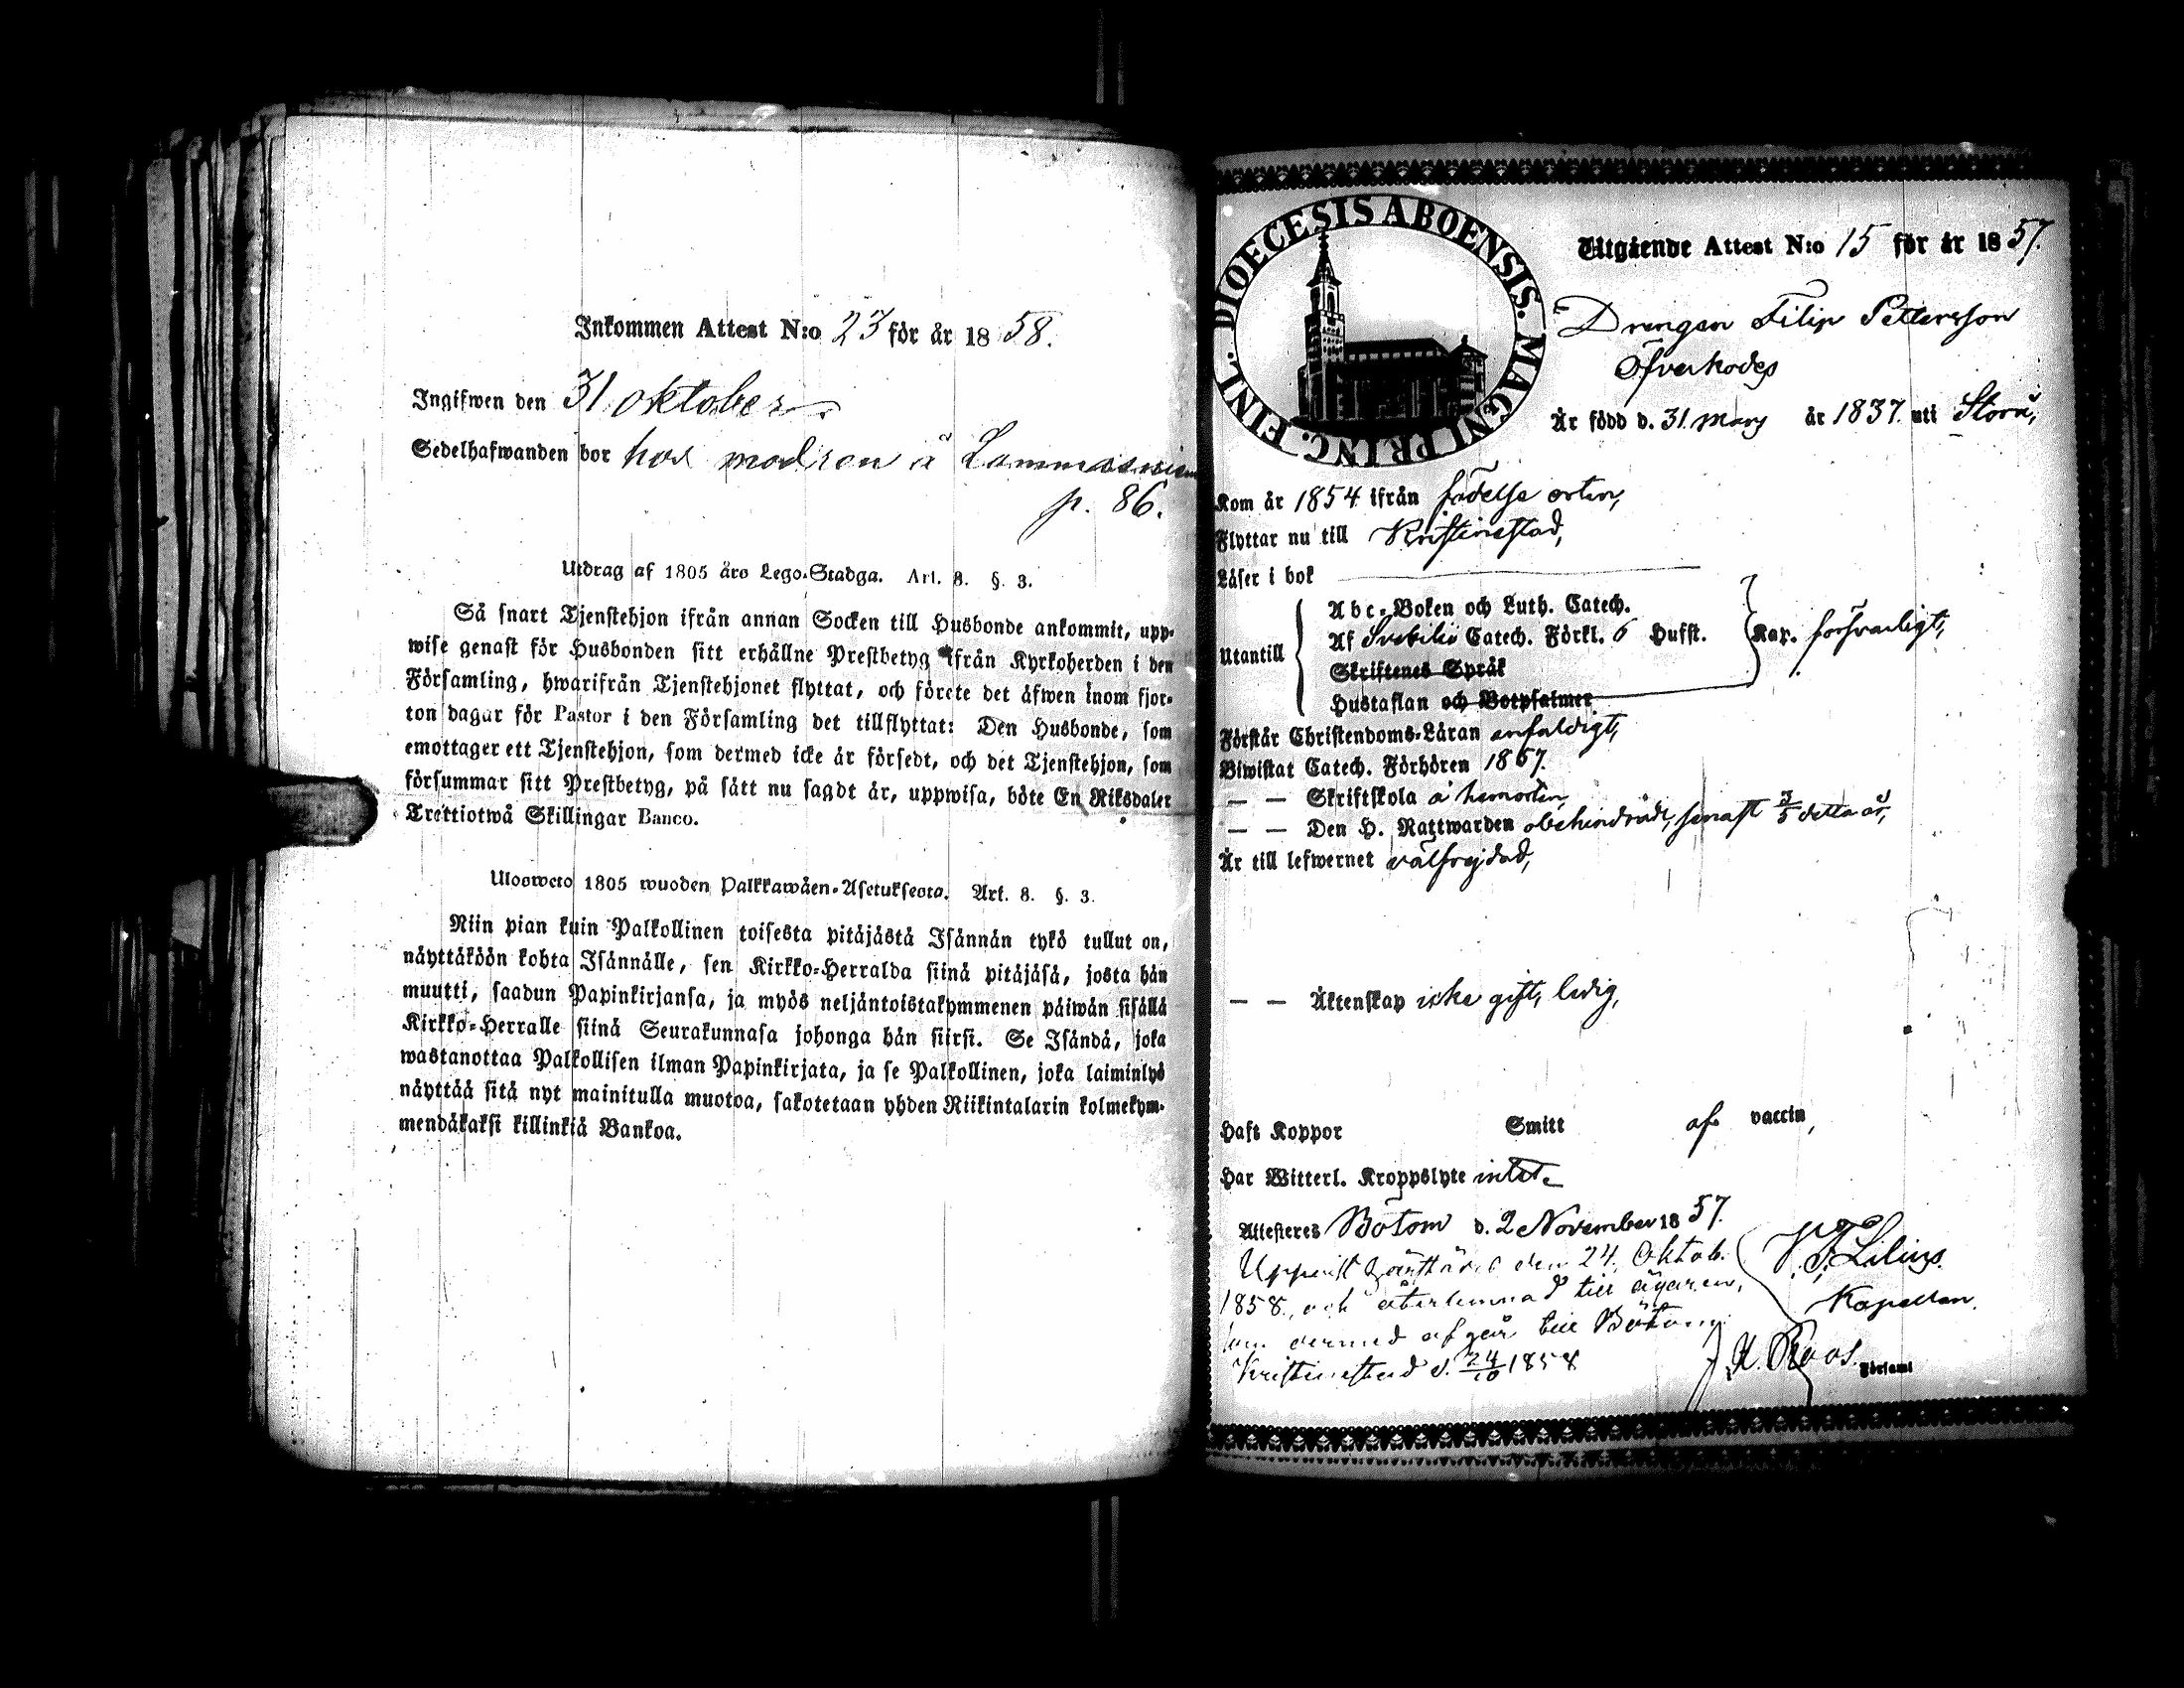 Inkommen Attest N:o 23 för år 1858.
Ingifwen den 31 oktober.
Sedelhafwanden bor hos modren å
p. 86.
Utdrag af 1805 års Lego-Stadga. Art. 8. §. 3.
Så snart Tjenstehjon ifrån annan Socken till Husbonde ankommit, upp-
wise genast för Husbonden sitt erhållne Prestbetyg ifrån Kyrkoherden i den
Församling, hwarifrån Tjenstehjonet flyttat, och förete det äfwen inom fjor-
ton dagar för Pastor i den Församling det tillflyttat: Den Husbonde, som
emottager ett Tjenstehjon, som dermed icke är försedt, och det Tjenstehjon, som
försummar sitt Prestbetyg, på sätt nu sagdt är, uppwisa, böte En Riksdaler
Trettiotwå Skillingar Banco.
Ulosweto 1805 wuoden Palkkawäen-Asetuksesta. Art. 8. §. 3.
Niin pian kuin Palkollinen toisesta pitäjästä Isännän tykö tullut on,
näyttäköön kohta Isännälle, sen Kirkko-Herralda siinä pitäjäsä, josta hän
muutti, saadun Papinkirjansa, ja myös neljäntoistakymmenen päiwän sisällä
Kirkko-Herralle siinä Seurakunnasa johonga hän siirsi. Se Isändä, joka
wastanottaa Palkollisen ilman Papinkirjata, ja se Palkollinen, joka laiminlyö
näyttää sitä nyt mainitulla muotoa, sakotetaan yhden Riikintalarin kolmekym-
mendäkaksi killinkiä Bankoa.
DIOECESIS ABOENSIS. MAGNI PRINC. FINL.
Utgående Attest N:o 15 för år 1857.
Drengen Filip Pettersson
Öfverkodes
Är född d. 31 mars år 1837. uti Storå,
Kom år 1854 ifrån födelse orten,
Flyttar nu till Kristinestad,
Läser i bok
Abc-Boken och Luth. Catech.
Utantill Af Svebilii Catech. Förkl. 6 Hufst. Kap. försvarligt,
Skriftenes Språk
Hustaflan och Botpsalmer
Förstår Christendoms-Läran enfaldigt,
Biwistat Catech. Förhören 1857.
— — Skriftskola å hemorten,
— — Den H. Nattwarden obehindradt, senast 3/5 detta år,
Är till lefwernet välfrejdad,
— — Äktenskap icke gift, ledig,
Haft Koppor Smitt af vaccin,
Har Witterl. Kroppslyte intet.
Attesteres Bötom d. 2 November 1857.
V. F. Lilius.
Kapellan.
den 24. Oktob.
1858., och återlemnad till ägaren,
som dermed afgår till Bötom.
Kristinestad d. 24/10 1858
K. Roos.
Församl